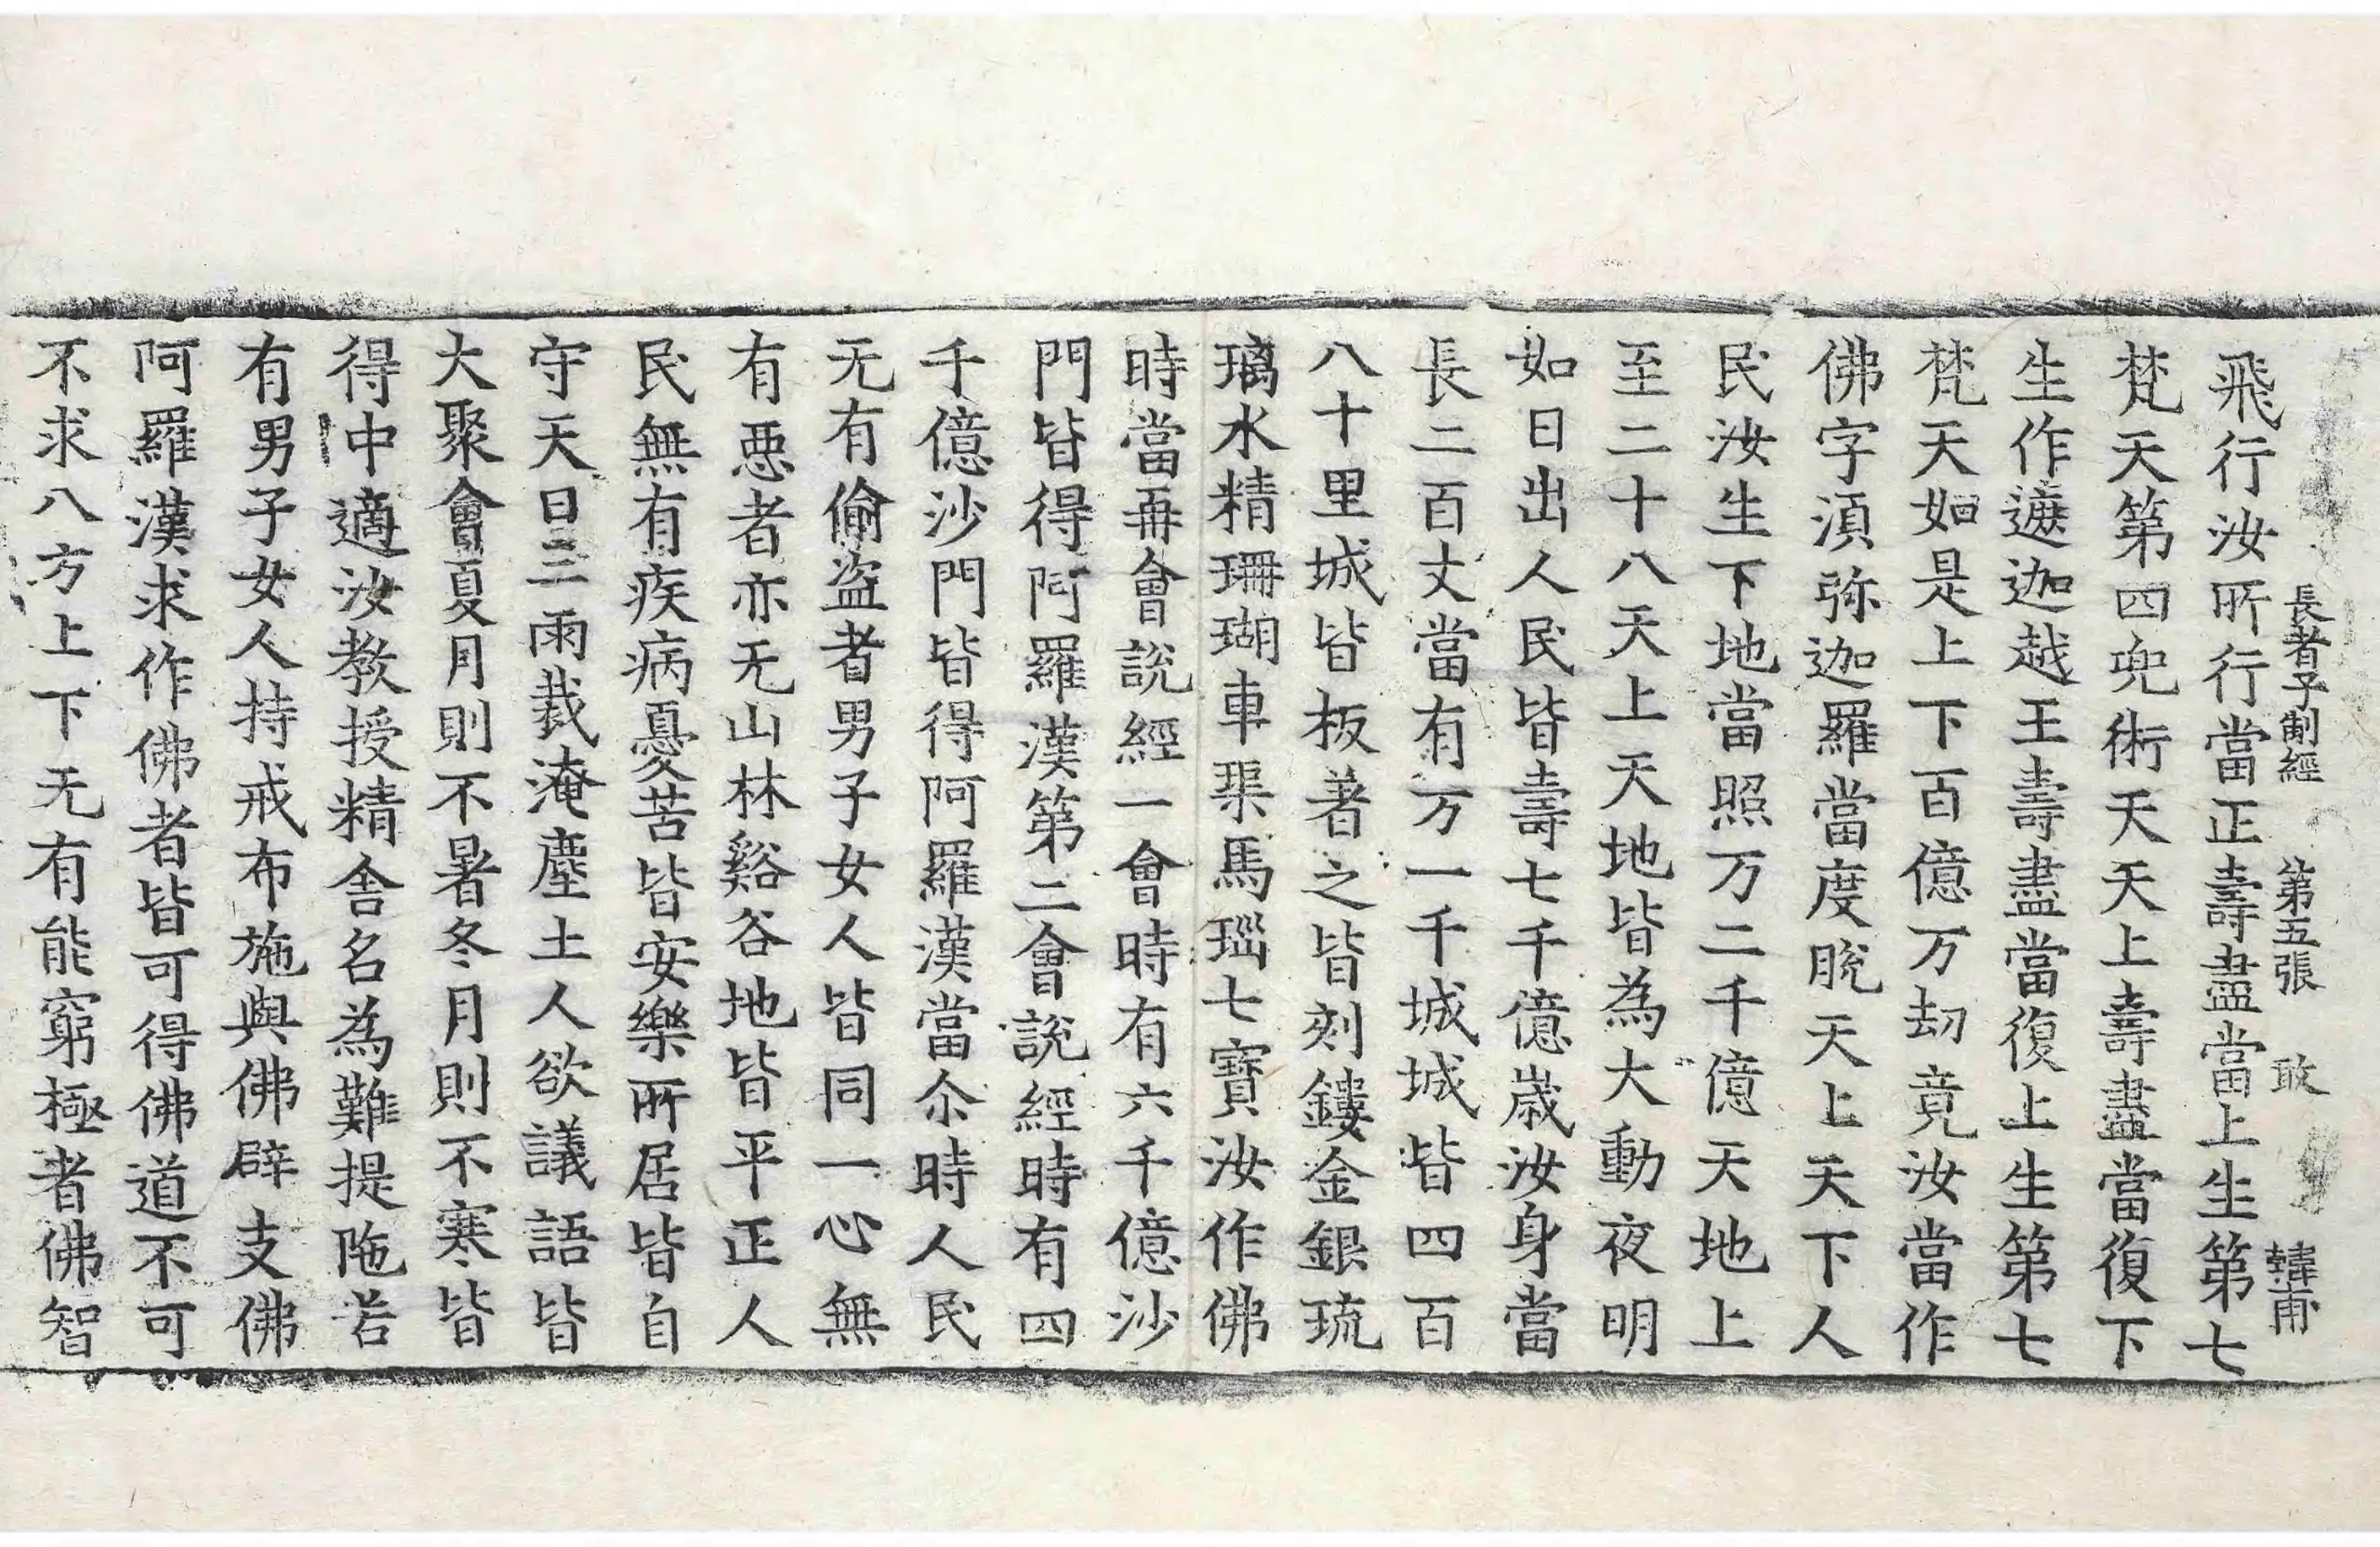 長者子制經 第五張 敢 韓甫
飛行汝所行當正壽盡當上生第七
梵天第四兜術天天上壽盡當復下
生作遮迦越王壽盡當復上生第七
梵天如是上下百億万劫竟汝當作
佛字湏弥迦羅當度脫天上天下人
民汝生下地當照万二千億天地上
至二十八天上天地皆為大動夜明
如日出人民皆壽七千億歲汝身當
長二百丈當有万一千城城皆四百
八十里城皆板著之皆刻鏤金銀琉
璃水精珊瑚車渠馬瑙七寶汝作佛
時當再會說經一會時有六千億沙
門皆得阿羅漢第二會說經時有四
千億沙門皆得阿羅漢當尒時人民
无有偷盜者男子女人皆同一心無
有惡者亦无山林谿谷地皆平正人
民無有疾病憂苦皆安樂所居皆自
守天日三雨裁淹塵土人欲議語皆
大聚會夏月則不暑冬月則不寒皆
得中適汝教授精舍名為難提陁若
有男子女人持戒布施與佛辟支佛
阿羅漢求作佛者皆可得佛道不可
不求八方上下无有能窮極者佛智